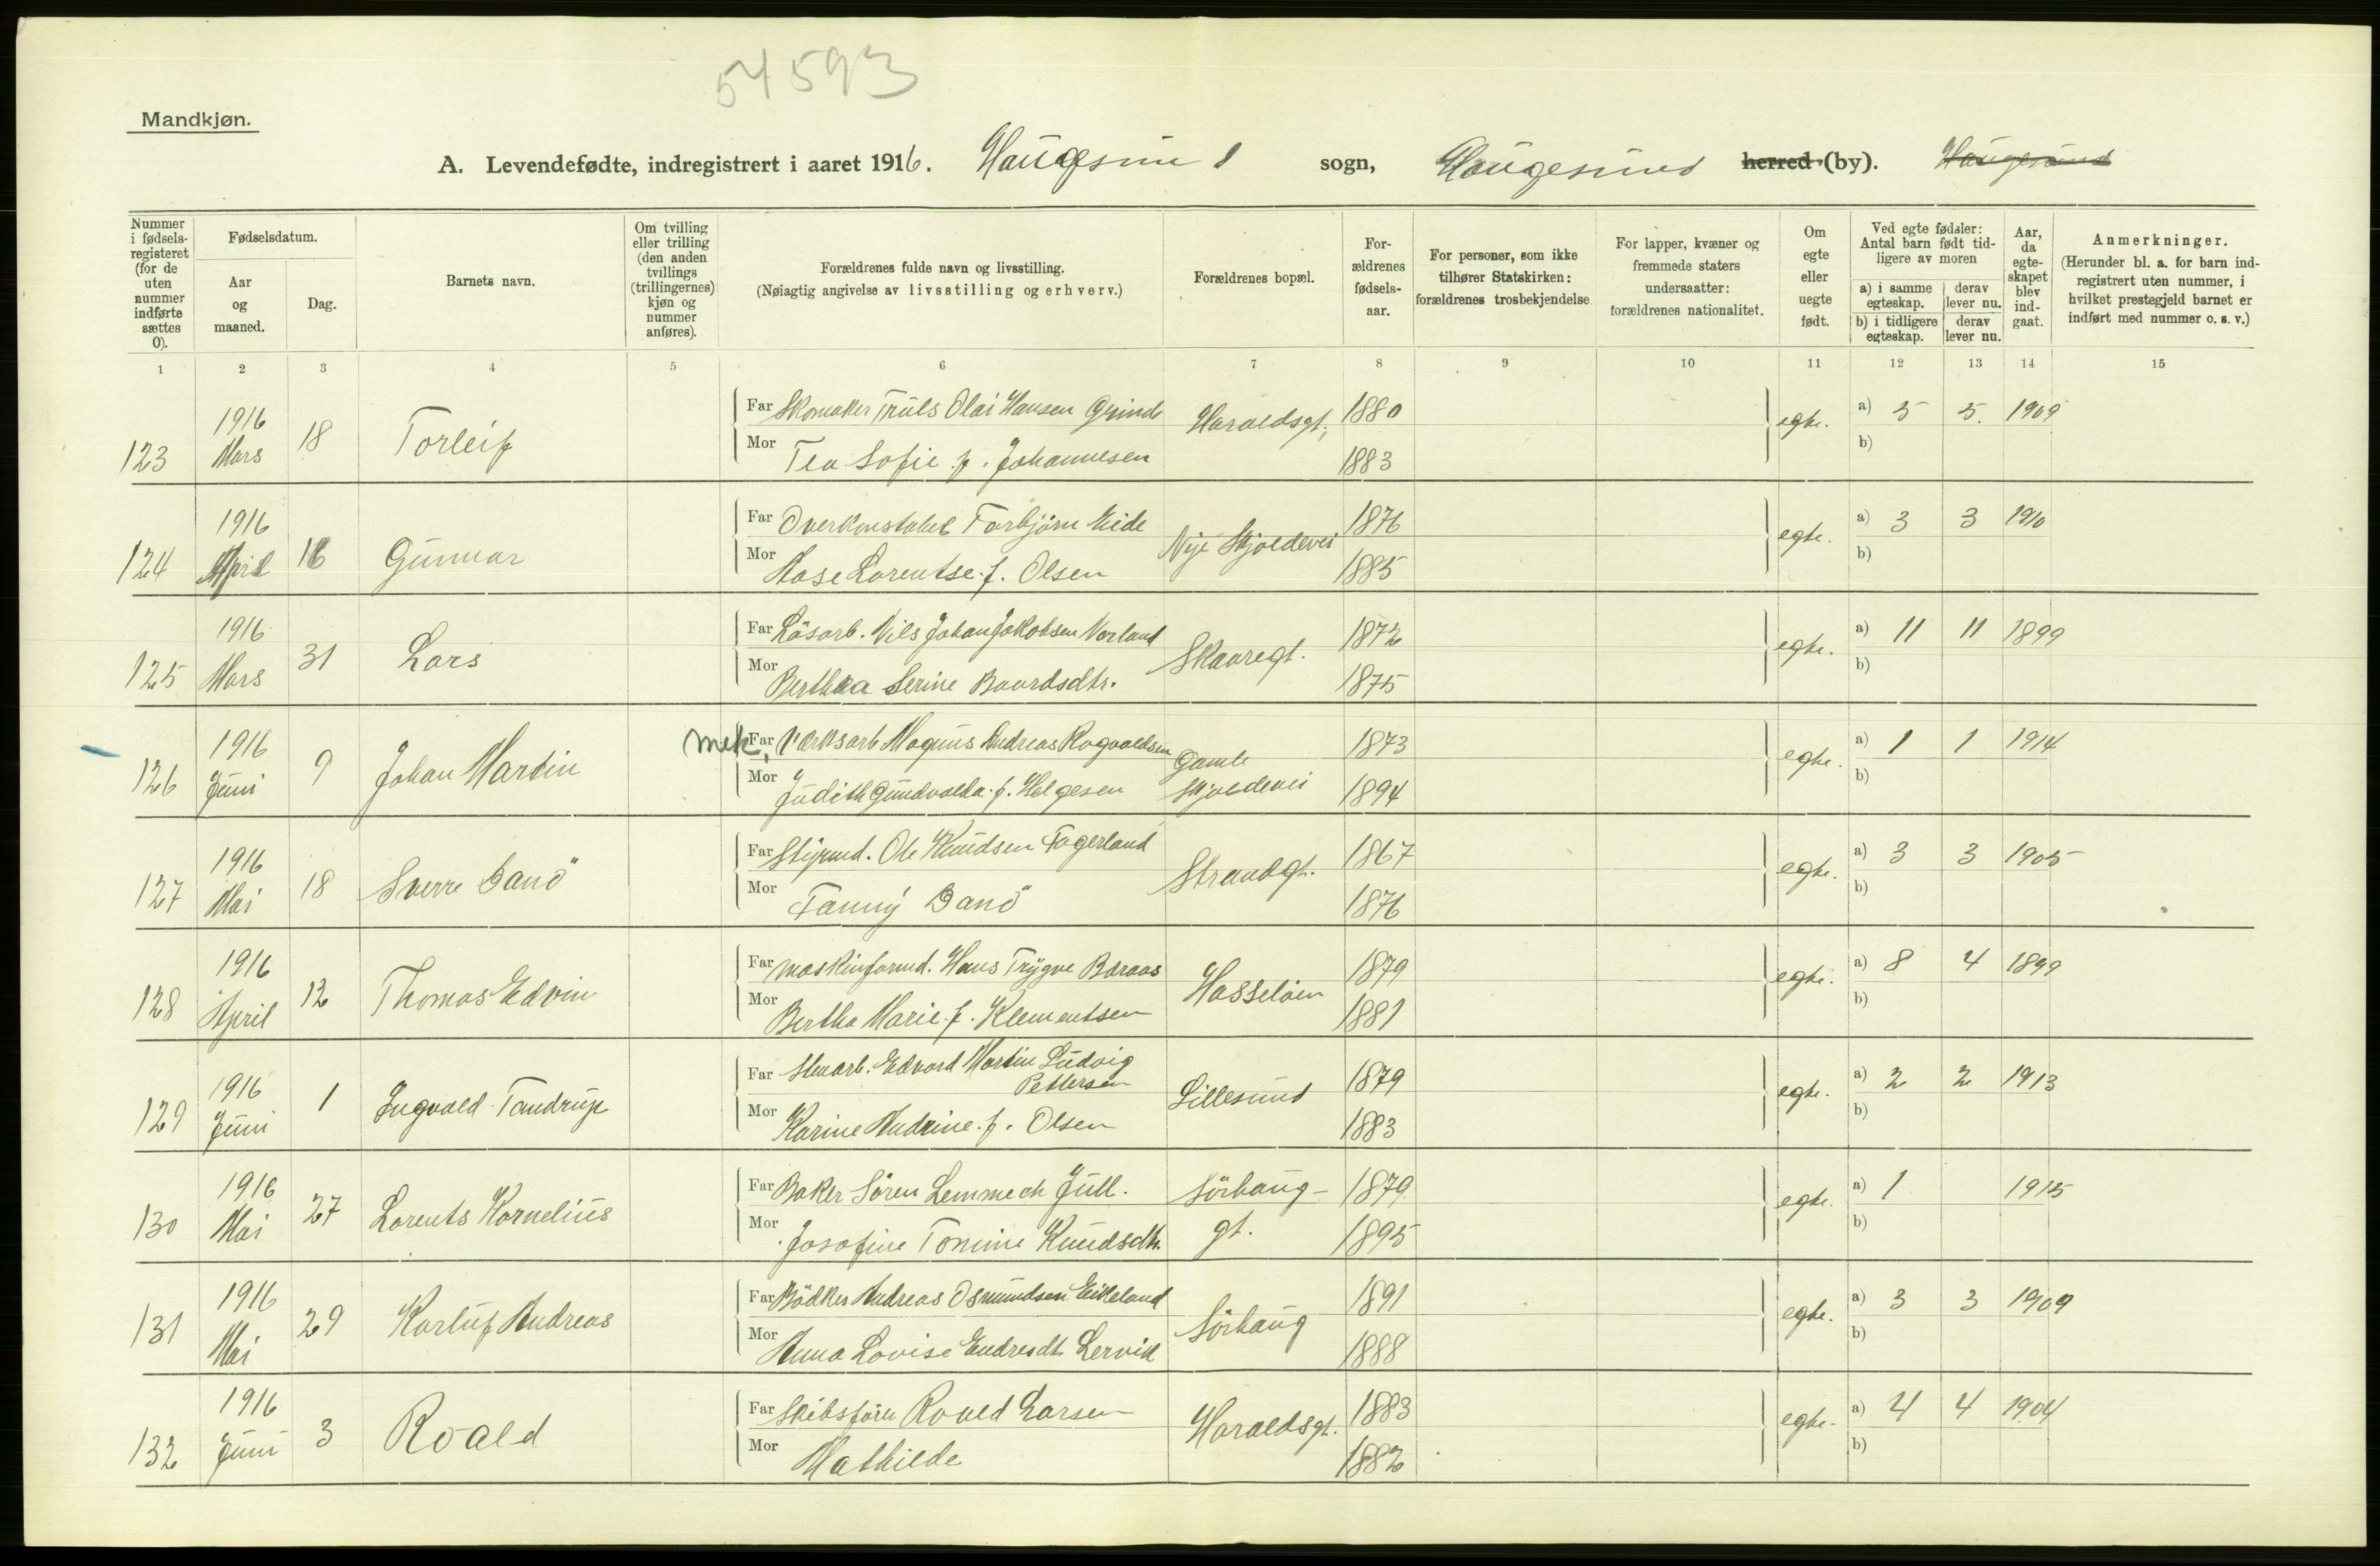 54593
Mandkjøn.
A. Levendefødte, indregistrert i aaret 1916. Haugesund sogn, Haugesund herred (by). Haugesund
Nummer i fødselsregisteret (for de uten nummer indførte sættes 0).
Fødselsdatum.
Aar og maaned.
Dag.
Barnets navn.
Om tvilling eller trilling (den anden tvillings (trillingernes) kjøn og nummer anføres).
Forældrenes fulde navn og livsstilling.
(Nøiagtig angivelse av livsstilling og erhverv.)
Forældrenes bopæl.
Forældrenes fødselsaar.
For personer, som ikke tilhører Statskirken: forældrenes trosbekjendelse
For lapper, kvæner og fremmede staters undersaatter: forældrenes nationalitet.
Om egte eller uegte født.
Ved egte fødsler: Antal barn født tidligere av moren
a) i samme egteskap.
derav lever nu.
b) i tidligere egteskap.
derav lever nu.
Aar, da egteskapet blev indgaat.
Anmerkninger.
(Herunder bl. a. for barn indregistrert uten nummer, i hvilket prestegjeld barnet er indført med nummer o. s. v.)
1 2 3 4 5 6 7 8 9 10 11 12 13 14 15
123 1916 Mars 18 Torleif Far Skomaker Truls Olai Hansen Grinde Haraldsgt. 1880 egte. a) 5 5. 1909
Mor Tea Sofie f. Johannesen 1883 b)
124 1916 April 16 Gunnar Far Overkonstabel Torbjörn Eide Nye Skjoldevei 1876 egte. a) 3 3 1910
Mor Aase Lorentse f. Olsen 1885 b)
125 1916 Mars 31 Lars Far Lösarb. Nils Johan Jakobsen Vorland Skaaregt. 1872 egte. a) 11 11 1899
Mor Bertha Serine Baardsdtr. 1875 b)
126 1916 Juni 9 Johan Martin Far mek. Verksarb Magnus Andreas Ragvaldsen Gamle Skjoldevei 1873 egte. a) 1 1 1914
Mor Judith Gundvalda f. Helgesen 1894 b)
127 1916 Mai 18 Sverre Danö Far Styrmd. Ole Knudsen Fagerland Strandgt. 1867 egte. a) 3 3 1905
Mor Fanny Danö 1876 b)
128 1916 April 12 Thomas Edvin Far maskinformd. Hans Trygve Baraas Hasseløen 1879 egte. a) 8 4 1899
Mor Bertha Marie f. Klementsen 1881 b)
129 1916 Juni 1 Ingvald Tandrup Far Stenarb. Edvard Martin Ludvig Pettersen Lillesund 1879 egte. a) 2 2 1913
Mor Karine Andrine f. Olsen 1883 b)
130 1916 Mai 27 Lorents Kornelius Far Baker Sören Lemmech Jull. Sörhauggt. 1879 egte. a) 1 1915
Mor Josofine Tomine Knudsdtr. 1895 b)
131 1916 Mai 29 Karluf Andreas Far Bödker Andreas Osmundsen Eikeland Sörhaug 1891 egte. a) 3 3 1909
Mor Anna Lovise Endresdt. Lervik 1888 b)
132 1916 Juni 3 Roald Far Skibsförer Roald Larsen Haraldsgt. 1883 egte. a) 4 4 1904
Mor Mathilde 1882 b)